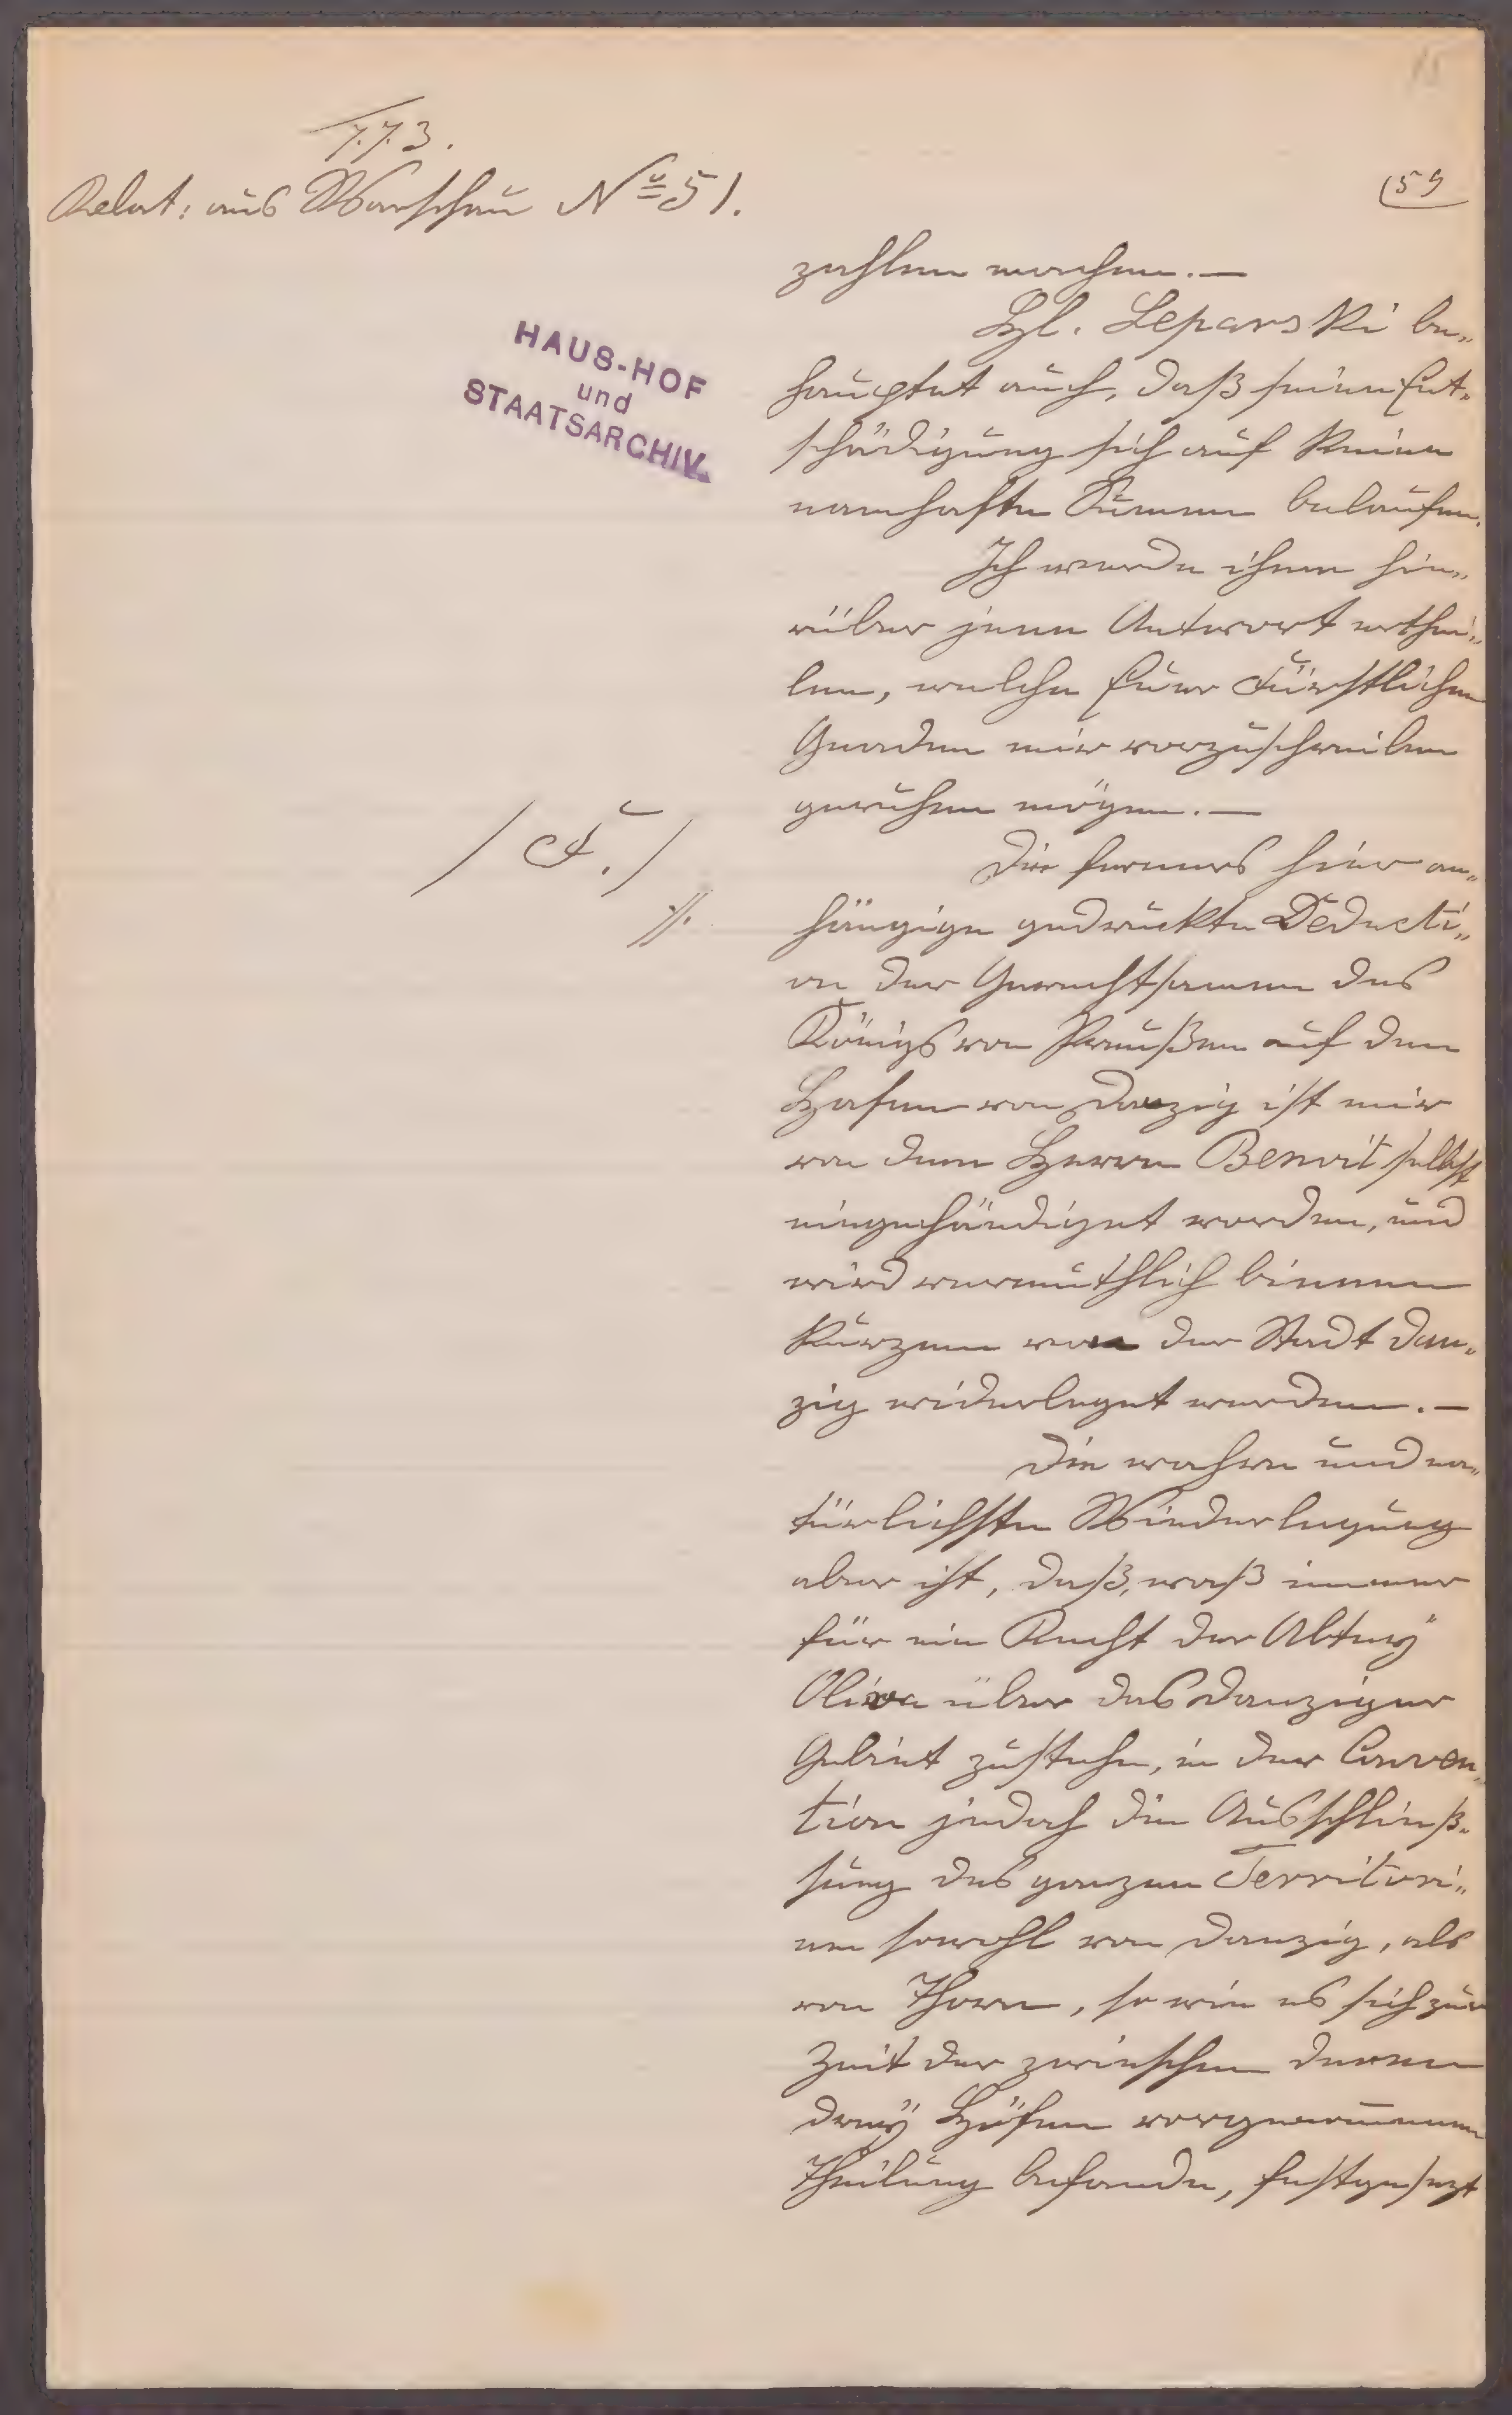 15
773.
Relat: aus Warschau No 51.
59
HAUS-HOF
und
STAATSARCHIV.
zahlen machen.—
H. Leparski be„
hauptet auch, daß seine Ent„
schädigung sich auf keine
namhafte Summe belaufe.
Ich werde ihme hie„
rüber jene Antwort erthei„
len, welche Euer Fürstlichen
Gnaden mir vorzuschreiben
geruhen mögen.—
/ F. /
//.
Die ferners hier an„
hängige gedruckte Deducti„
on der Gerechtsamen des
Königs von Preußen auf den
Hafen von Danzig ist mir
von dem Herrn Benoit selbst
eingehändiget worden, und
wird vermuthlich binnen
kurzem von der Stadt Dan„
zig widerleget werden.—
Die wahre und na„
türlichste Wiederlegung
aber ist, daß, waß immer
für ein Recht der Abtey
Oliva über das Danziger
Gebiet zustehe, in der Conven„
tion jedoch die Ausschließ„
sung des ganzen Territori„
um sowohl von Danzig, als
von Thorn, so wie es sich zur
Zeit der zwischen denen
drey Höfen vorgenommenen
Theilung befande, festgesezt